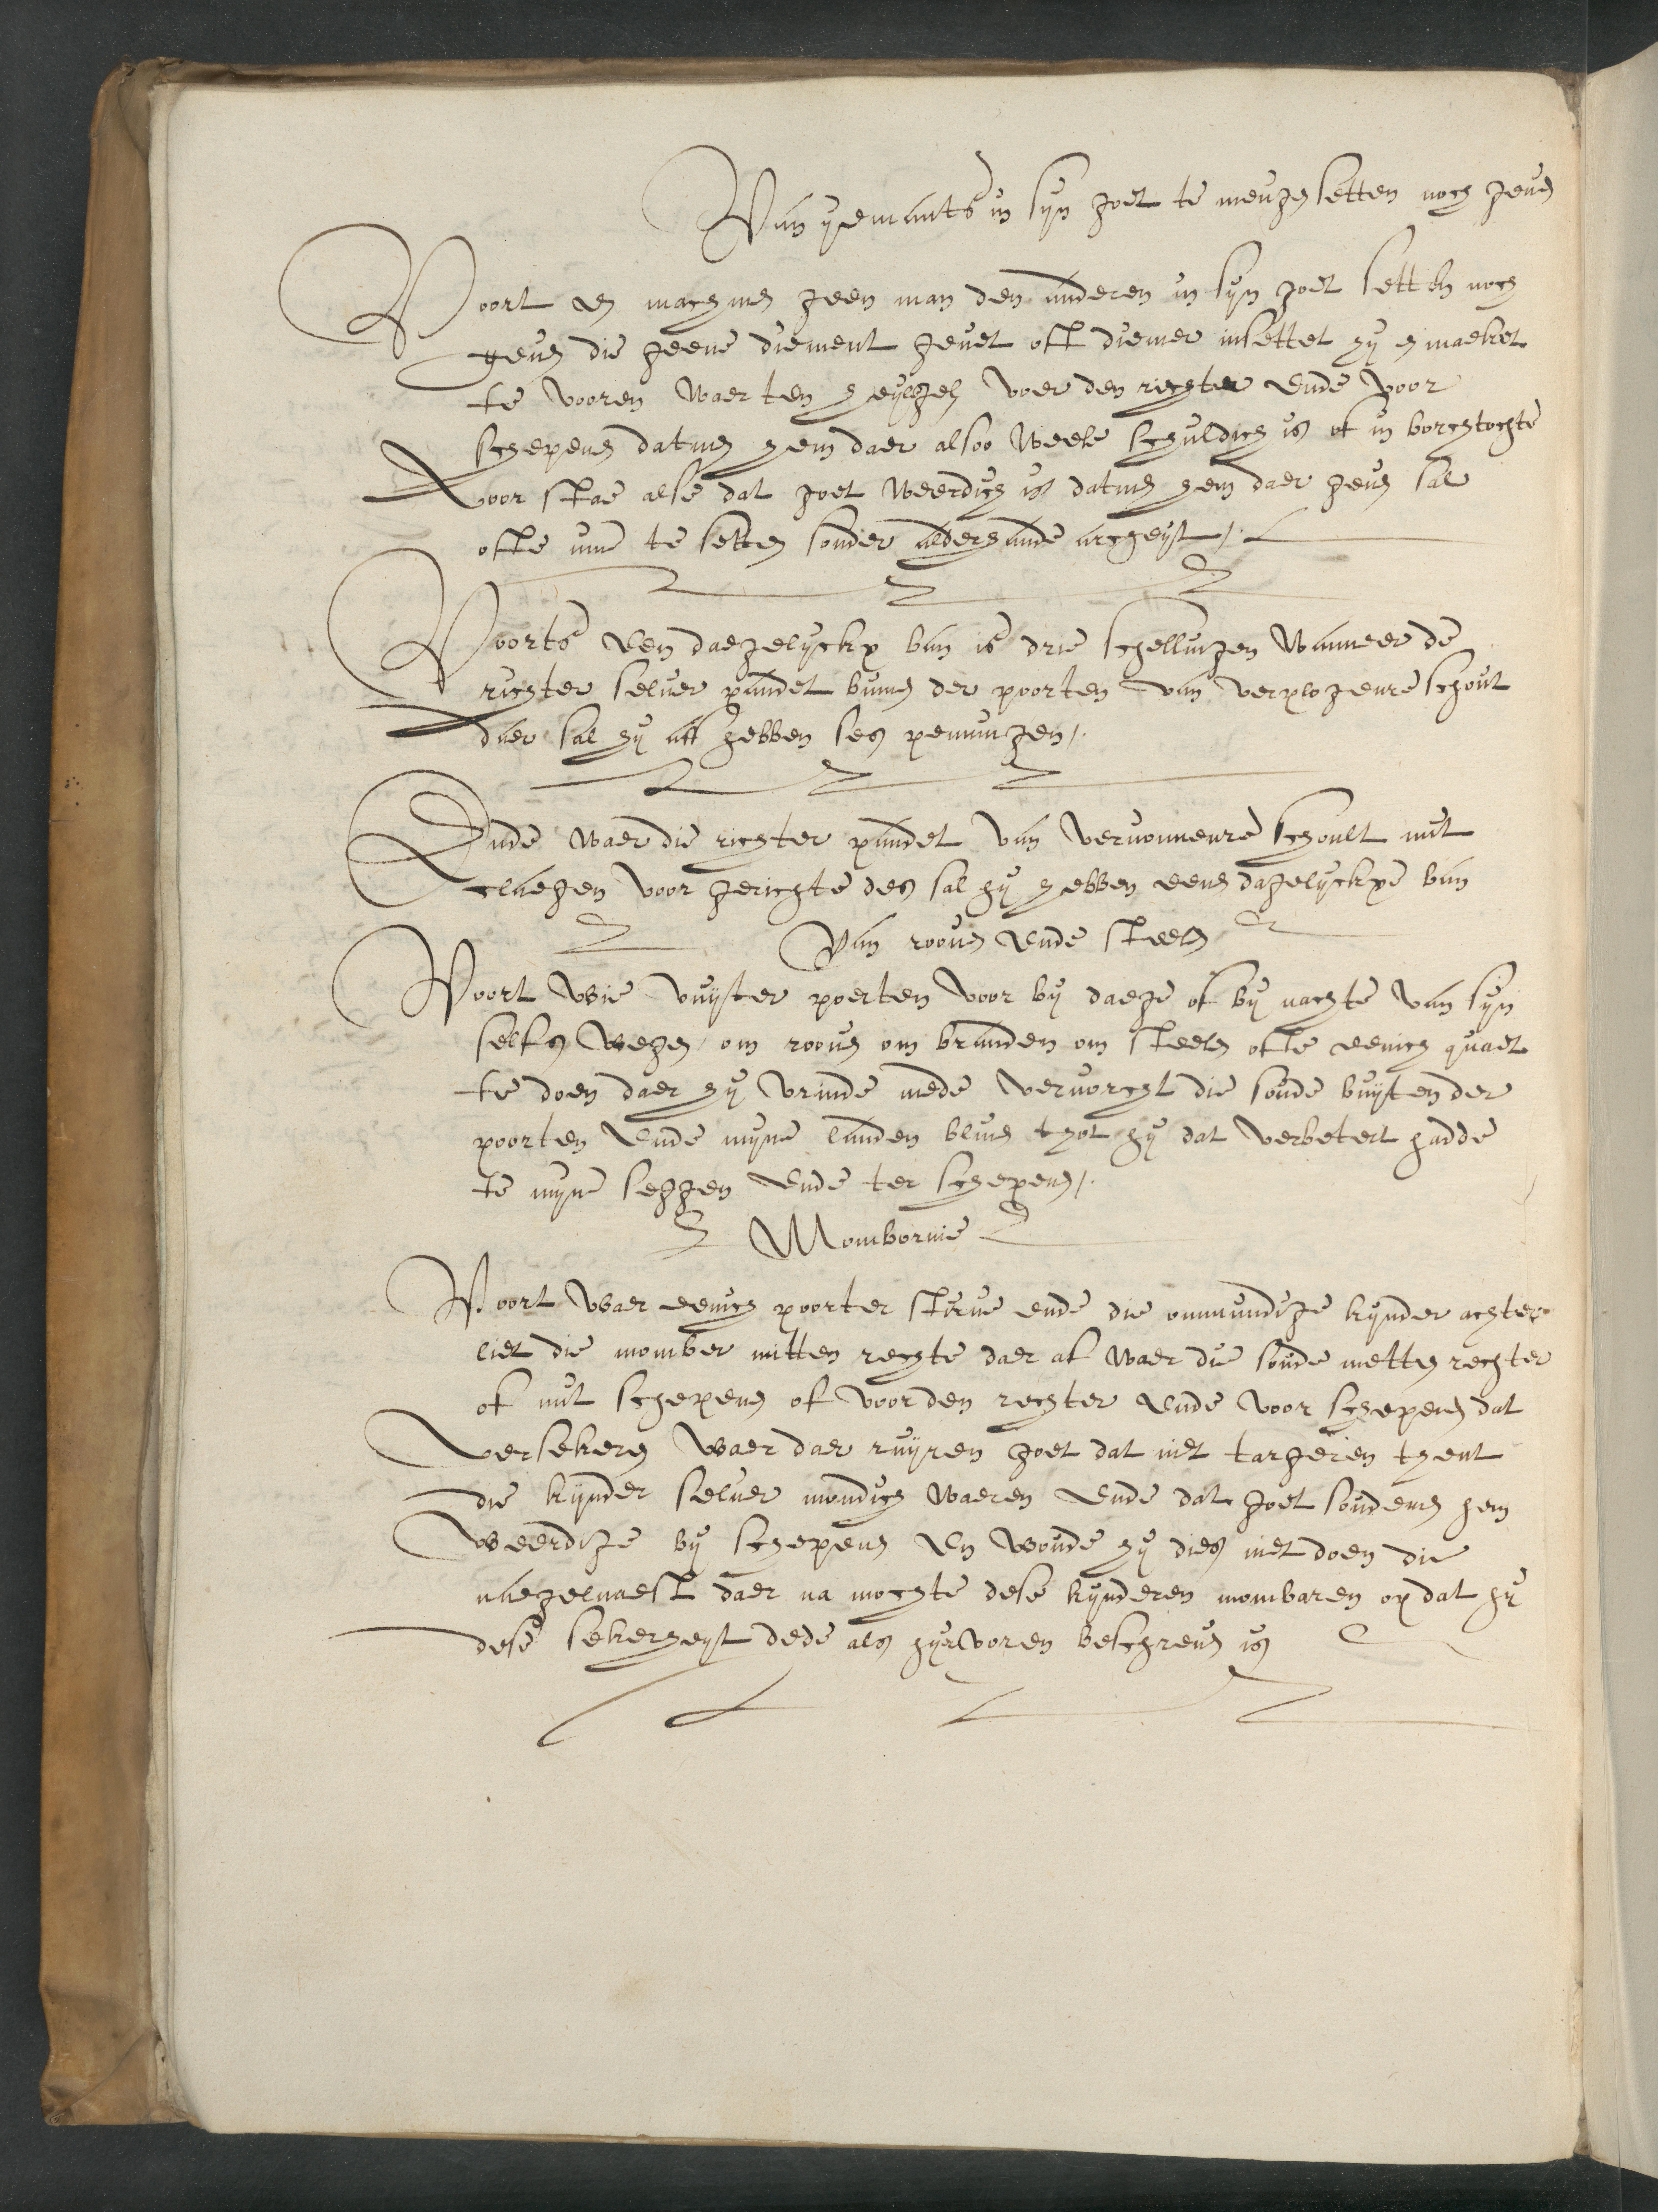 Van yemants in syn goet te menghen setten noch geven
Voort en machmen geen man den anderen in syn goet setten noch
geven die geene diement gevet oft diemer insettet hy en maeket
te vooren waer ten heylighen voer den richter ende voor
schepenen datmen hem daer alsoo veele schuldich is of in borchtochte
voor stae alse dat goet weerdich is datmen hem daer geven sal
ofte inne te setten sonder alderhande archeyt /.
Voorts een daegelyckx ban is drie schellingen wanneer de
richter selver pandet binnen der poorten van verplogenre schout
daer sal hy aff hebben ses penningen /.
Ende waer die richter pandet van verwonnenre schoult mit
claegen voor gerichte des sal hy hebben eenen dagelyckxe ban
Van rooven ende steelen
Voort wie vuyter poerten voor by daege of by nachte van syn
selfs wegen / om rooven om branden om steelen ofte eenich quaet
te doen daer hy vrinde mede verworcht die soude buyten der
poorten ende mynen landen bliven thot hy dat verbetert hadde
te mynen seggen ende ter schepenen /.
Momborrie
Voort waer eenich poorter sturve ende die onmundige kynder achter
liet die momber mitten rechte daer af waer die soude metten rechter
of mit schepenen of voor den rechter ende voor schepenen dat
versekeren waer daer ruyren goet dat niet targeren thent
die kynder selver mondich waeren ende dat goet soudemen hem
weerdige by schepenen en woude hy dies niet doen die
naegelnaest daer na mochte dese kynderen mombaren op dat hy
dese sekerheyt dede als hyrvoren beschreven is